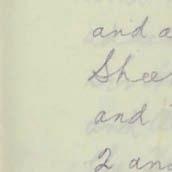 and a
Shee
and
2 and